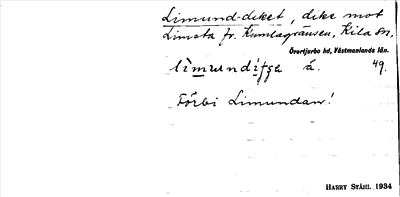 Limund-diket, dike mot
Limsta fr. Kumlagränsen, Kila sn,
Övertjurbo hd, Västmanlands län.
á. 49.
Förbi Limundan!
HARRY STÅHL 1934